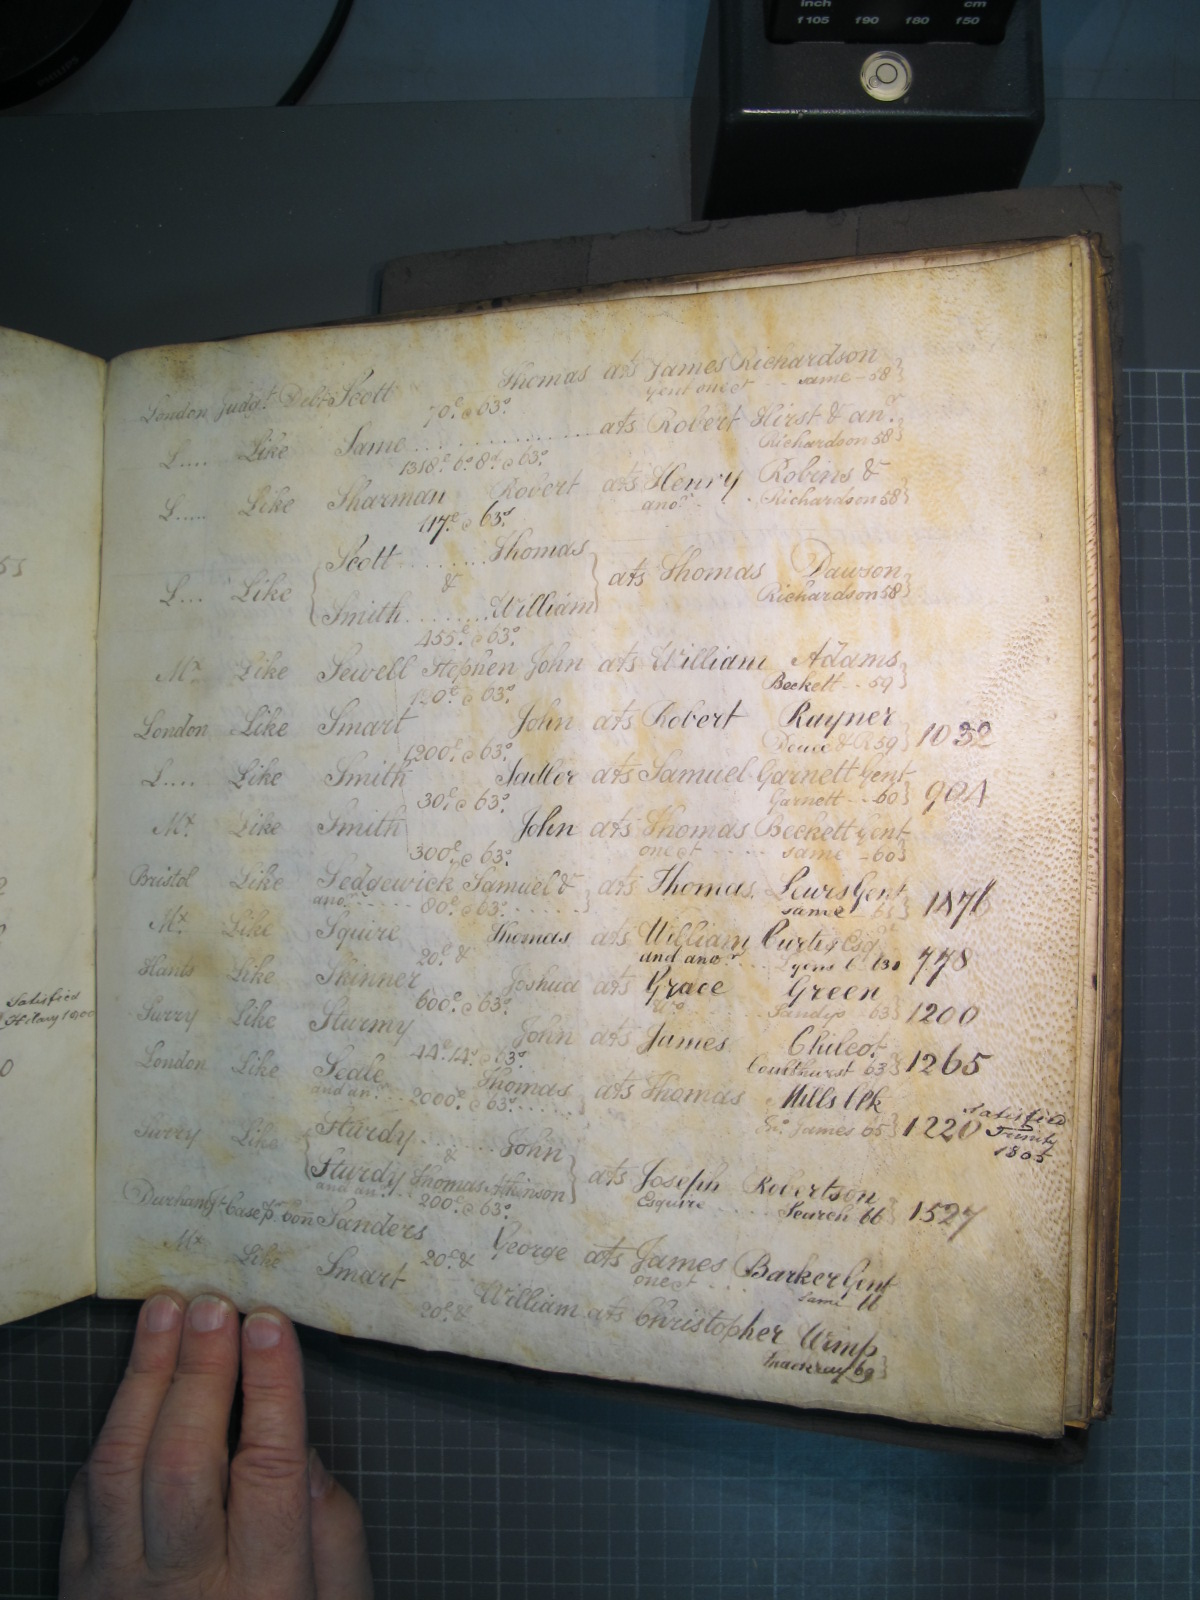 inch cm
f105 f90 f80 f50
PHILIPS
London Judgt. Debt Scott Thomas ats James Richardson
70£ @ 63s. gent one &ct same - 58}
L.... Like Same ats Robert Hirst & anr.
1318£. 6s. 8d. @ 63s. Richardson 58}
L..... Like Sharman Robert ats Henry Robins &
117£ @ 63s. anor. Richardson 58}
Scott Thomas
L... Like & ats Thomas Dawson
Smith William Richardson 58}
455£ @ 63s.
Mx. Like Sewell Stephen John ats William Adams
120£ @ 63s. Beckett - - 59}
London Like Smart John ats Robert Rayner
1200£ @ 63s. 59} 1032
L.... Like Smith Sadler ats Samuel Garnett Gent
30£ @ 63s. Garnett - - 60} 904
Mx. Like Smith John ats Thomas Beckett Gent
300£ @ 63s. one &ct same - 60}
Bristol Like Sedgewick Samuel & ats Thomas Lewis Gent
anor. 80£ @ 63s. same 1876
Mx. Like Squire Thomas ats William Curtis Esq
20£ & and anor. 778
Hants Like Skinner Joshua ats Grace Green
600£ @ 63s. Wo. Sandys 63} 1200
Surry Like Sturmy John ats James Chilcot
44£. 14s. @ 63s. Coulthurst 63} 1265
London Like Seale Thomas ats Thomas Mills Clk
and anr. 2000£ @ 63s. James 65} 1220 Satisfied
Trinity
1805
Sturdy John
Surry Like & ats Joseph Robertson
Sturdy Thomas Atkinson Esquire Search 66 1527
and anr. 200£ @ 63s.
Durham Jt. Case p. Con Sanders George ats James Barker Gent
20£ & one &ct same
Mx. Like Smart William ats Christopher Wimp
20£ & Thackray 69}
53
Satisfied
Hilary
0